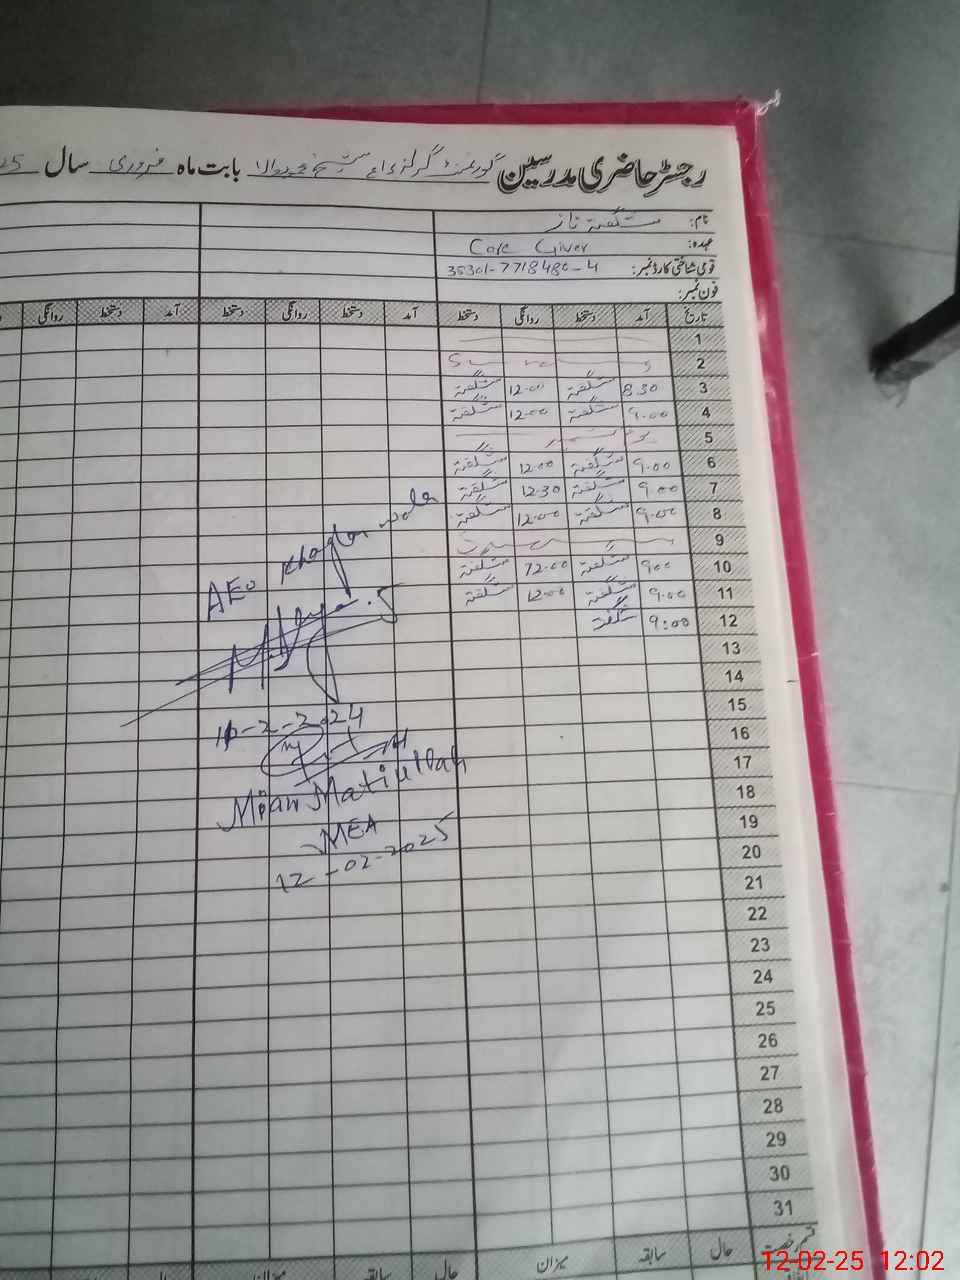 رجسٹر حاضری مدرسین گورنمنٹ گرلز بابت ماہ فروری سال 25
نام: شگفتہ ناز
عہدہ: Care Giver
قومی شناختی کارڈ نمبر: 35301-7718480-4
فون نمبر:
تاریخ آمد دستخط روانگی دستخط آمد دستخط روانگی دستخط آمد دستخط روانگی
1
2
3 8.30 شگفتہ 12.00 شگفتہ
4 9.00 شگفتہ 12.00 شگفتہ
5
6 9.00 شگفتہ 12.00 شگفتہ
7 9.00 شگفتہ 12.30 شگفتہ
8 9.00 شگفتہ 12.00 شگفتہ
9
10 9.00 شگفتہ 12.00 شگفتہ
11 9.00 شگفتہ 12.00 شگفتہ
12 9:00 شگفتہ
13
14
15
16
17
18
19
20
21
22
23
24
25
26
27
28
29
30
31
AEO
11-2-2024
Mian Matiullah
MEA
12-02-2025
قسم رخصت حال سابقہ میزان حال سابقہ میزان حال
12-02-25 12:02